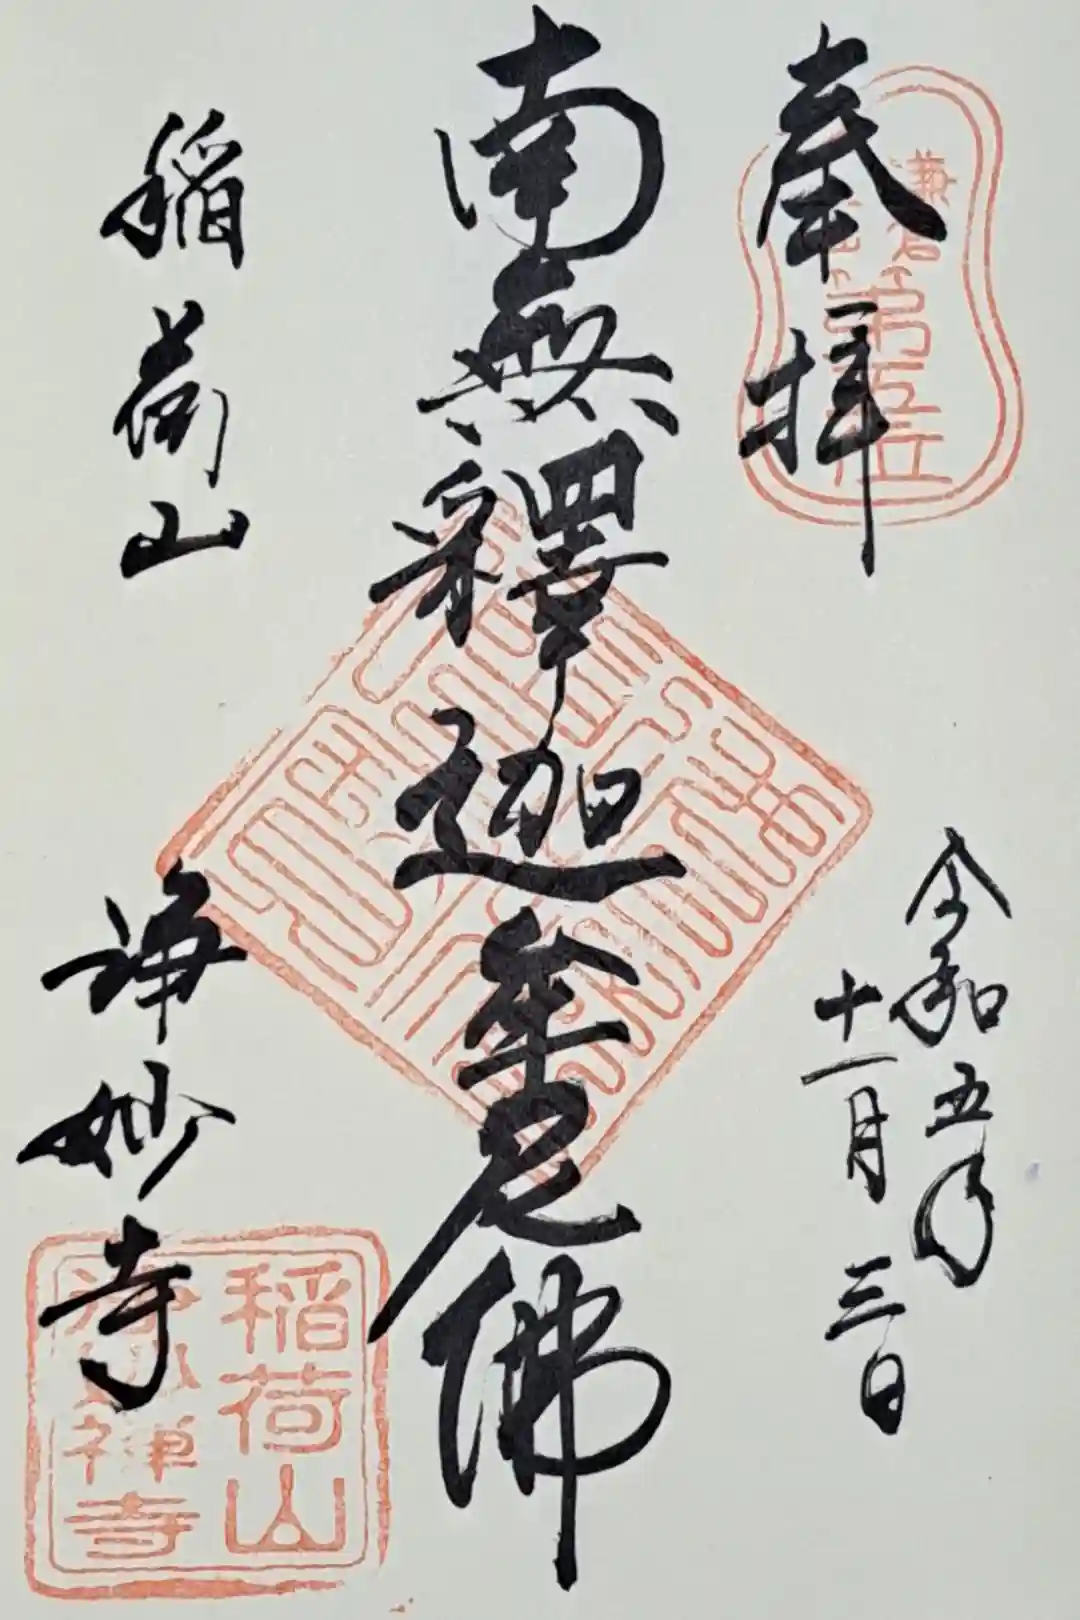 奉拝
令和五年
十一月三日
南無釋迦牟尼佛
稲荷山
浄妙寺
鎌倉
第五位
稲荷山
浄妙禅寺